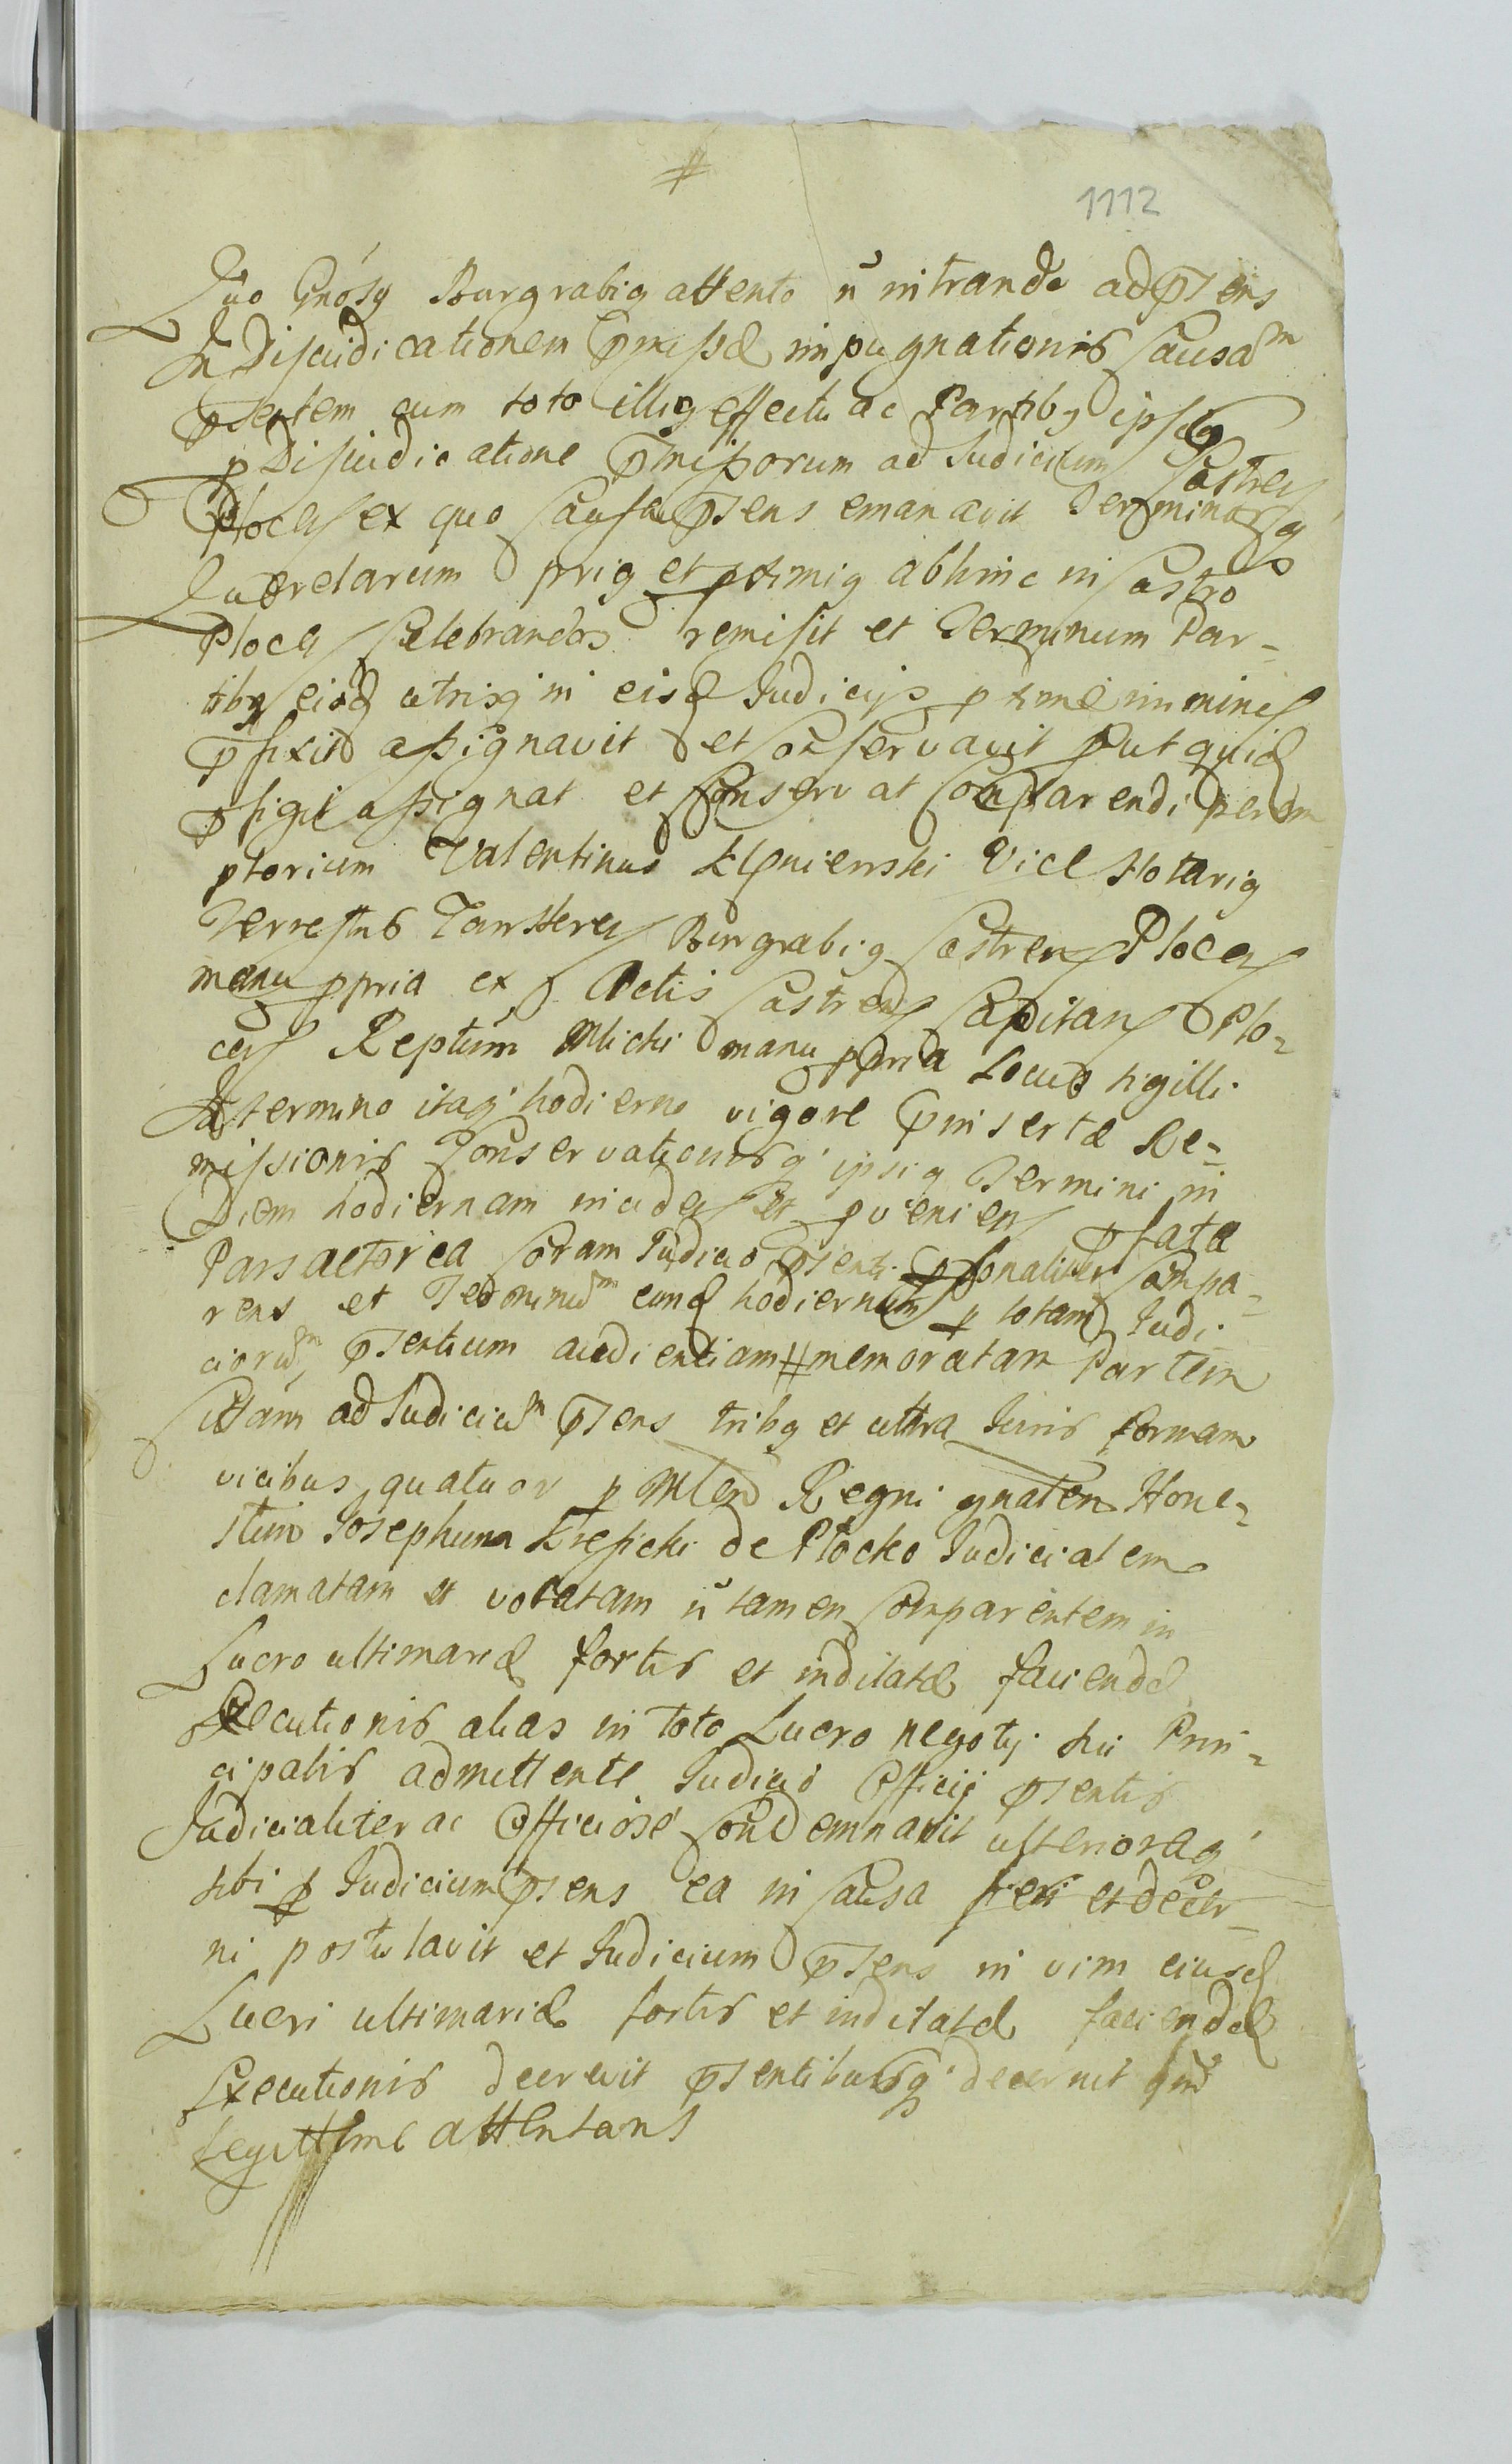 #
1112
Quo Gnosus Burgrabius attento n̄ intrando ad p̄sens
In Dijudicationem p̄missæ impugnationis Causam
p̄sentem cum toto illius effectu ac Partibus ipsis
p Dijudicatione p̄missorum ad Judicium Castren
Plocen ex quo Causa p̄sens emanavit Terminosq
Quærelarum prius et pximius abhinc in Castro
Plocen Celebrandos remisit et Terminum Par-
tibus eisd utrisq in eisd Judicijs pxime imminen
p̄fixit assignavit et conservavit put quid
p̄figit assignat et conservat comparendi perem
ptorium Valentinus Vice Notarius
Terrestris Burgrabius Castren Plocen
manu ppria ex Actis Castren Capitan Plo-
cen Reptum Mlicki manu ppria Locus sigilli
In termino itaq hodierno vigore p̄insertæ Re-
missionis Conservationisq ipsius Termini in
Diem hodiernam inciden et pvenien p̄fata
Pars actorea Coram Judicio p̄senti p̄sonaliter Compa-
rens et Terminum eund hodiernum p totam Judi
ciorum p̄sentium audientiam # memoratam Partem
Citam ad Judicium p̄sens tribus et ultra Juris formam
vicibus quatuor p Mlem Regni gnalem Hone-
stum Josephum de Plocko Judicialem
clamatam et vocatam n̄ tamen comparentem in
Lucro ultimariæ fortis et indilatæ faciendæ
Executionis alias in toto Lucro negotij sui Prin-
cipalis admittente Judicio Officij p̄sentis
Judicialiter ac Officiose condemnavit ulterioraq
sibi p Judicium p̄sens ea in Causa fieri et decer-
ni postulavit et Judicium p̄sens in vim eiusd
Lucri ultimariæ fortis et indilatæ faciendæ
Executionis decrevit p̄sentibusq decernit
Legittime attentans